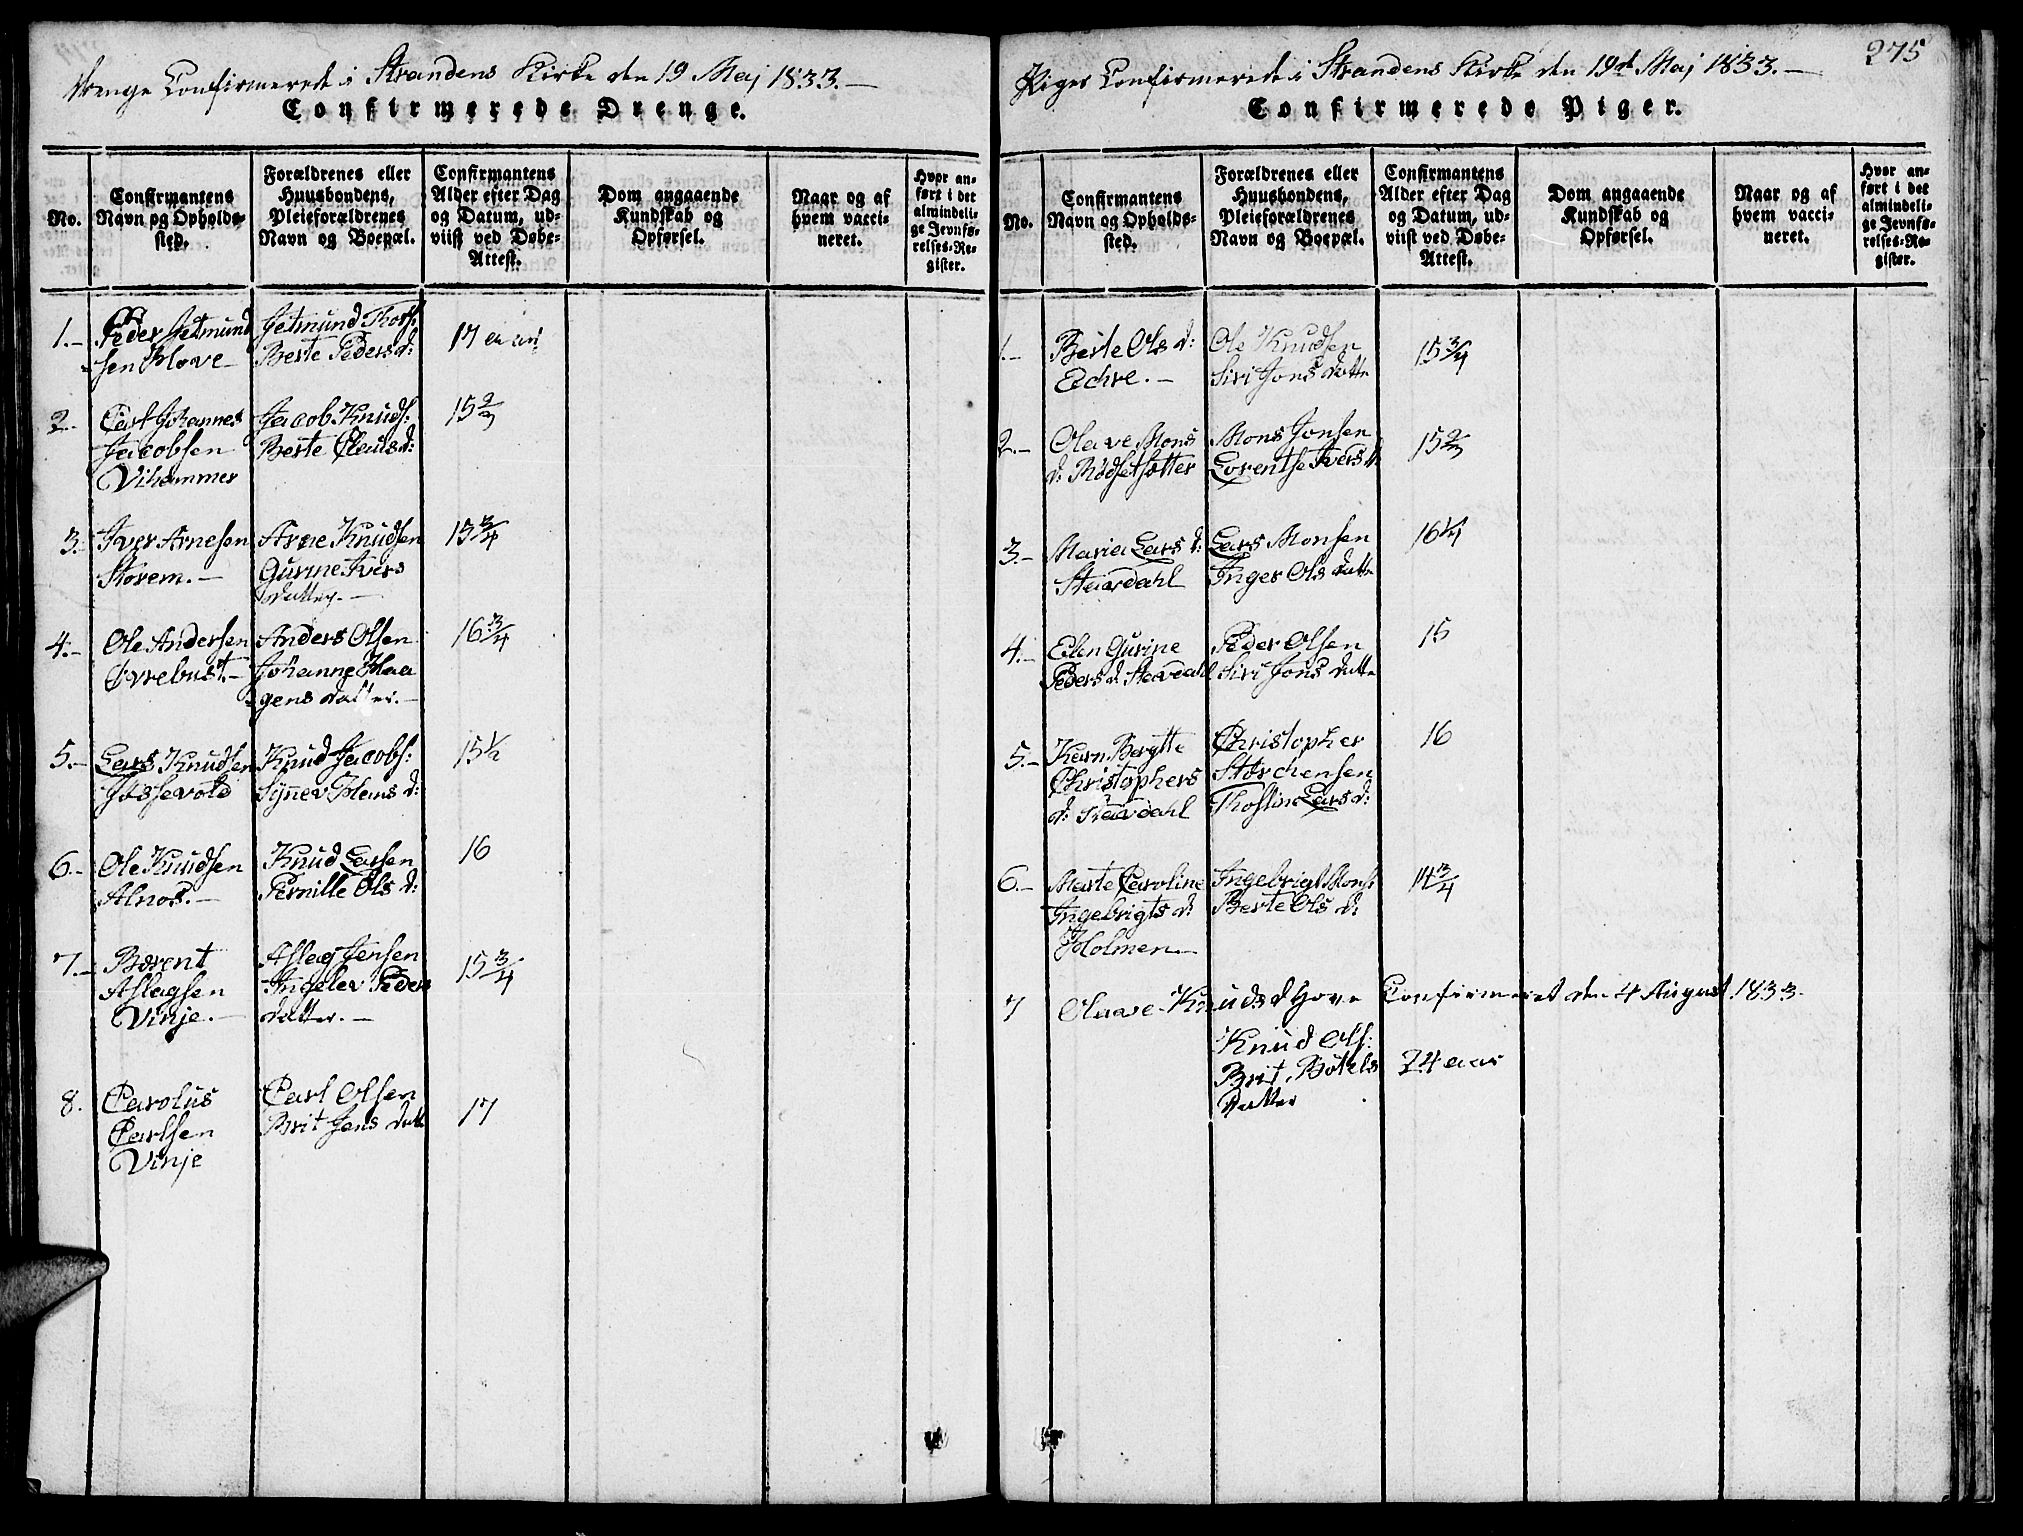 Drenge Confirmerede i Strandens Kirke den 19 Maj 1833.—
Confirmerede Drenge.
No.
Confirmantens
Navn og Opholds-
sted.
Forældrenes eller
Huusbondens,
Pleieforældrenes
Navn og Boepæl.
Confirmantens
Alder efter Dag
og Datum, ud-
viist ved Døbe-
Attest.
Dom angaaende
Kundskab og
Opførsel.
Naar og af
hvem vacci-
neret.
Hvor an-
ført i det
almindeli-
ge Jevnfø-
relses-Re-
gister.
1.—
Peder Jetmund
sen
Jetmund
Berte Peders d:
17
2.
Carl Johannes
Jacobsen
Vihammer
Jacob Knuds:
Berte Claus d:
15 2/3
3.
Iver Arnesen
Storem.—
Arne Knudsen
Gurine Ivers
datter.—
15 3/4
4.—
Ole Andersen
Øvrebust.—
Anders Olsen
Johanne Haa
gens datter.—
16 3/4
5.—
Lars Knudsen
Knud Jacobs:
15 1/2
6.—
Ole Knudsen
Alnos.—
Knud Larsen
Pernille Ols d:
16
7.—
Berent
Aslagsen
Vinje.—
Aslag Jensen
Ingelev Peders
datter.—
15 3/4
8.
Carolus
Carlsen
Vinje
Carl Olsen
Brit Jens datt
17
275
Piger Confirmerede i Strandens Kirke den 19d Maj 1833.—
Confirmerede Piger.
No.
Confirmantens
Navn og Opholds-
sted.
Forældrenes eller
Huusbondens,
Pleieforældrenes
Navn og Boepæl.
Confirmantens
Alder efter Dag
og Datum, ud-
viist ved Døbe-
Attest.
Dom angaaende
Kundskab og
Opførsel.
Naar og af
hvem vacci-
neret.
Hvor an-
ført i det
almindeli-
ge Jevnfø-
relses-Re-
gister.
1.—
Berte Ols d:
Echre.—
Ole Knudsen
Siri Jons datte
15 3/4
2.—
Olave Mons
d: Rødsetsætter
Mons Jonsen
Lorentse Ivers d:
15 2/3
3.—
Maria Lars d:
Stavdahl
Lars Monsen
Inger Ols datte
16 1/4
4.—
Elen Gurine
Peders d: Stavdahl
Peder Olsen
Siri Jons datte
15
5.—
Karn Bergtte
Christophers
d: Stavdahl
Christopher
Lars d:
16
6.—
Marte Caroline
Ingebrigts d:
Holmen—
Ingebrigt Mons:
Berte Ols d:
14 3/4
7
Olave Knuds d Hove Confirmeret den 4 August 1833.
Knud Ols:
Brit
datter
24 aar